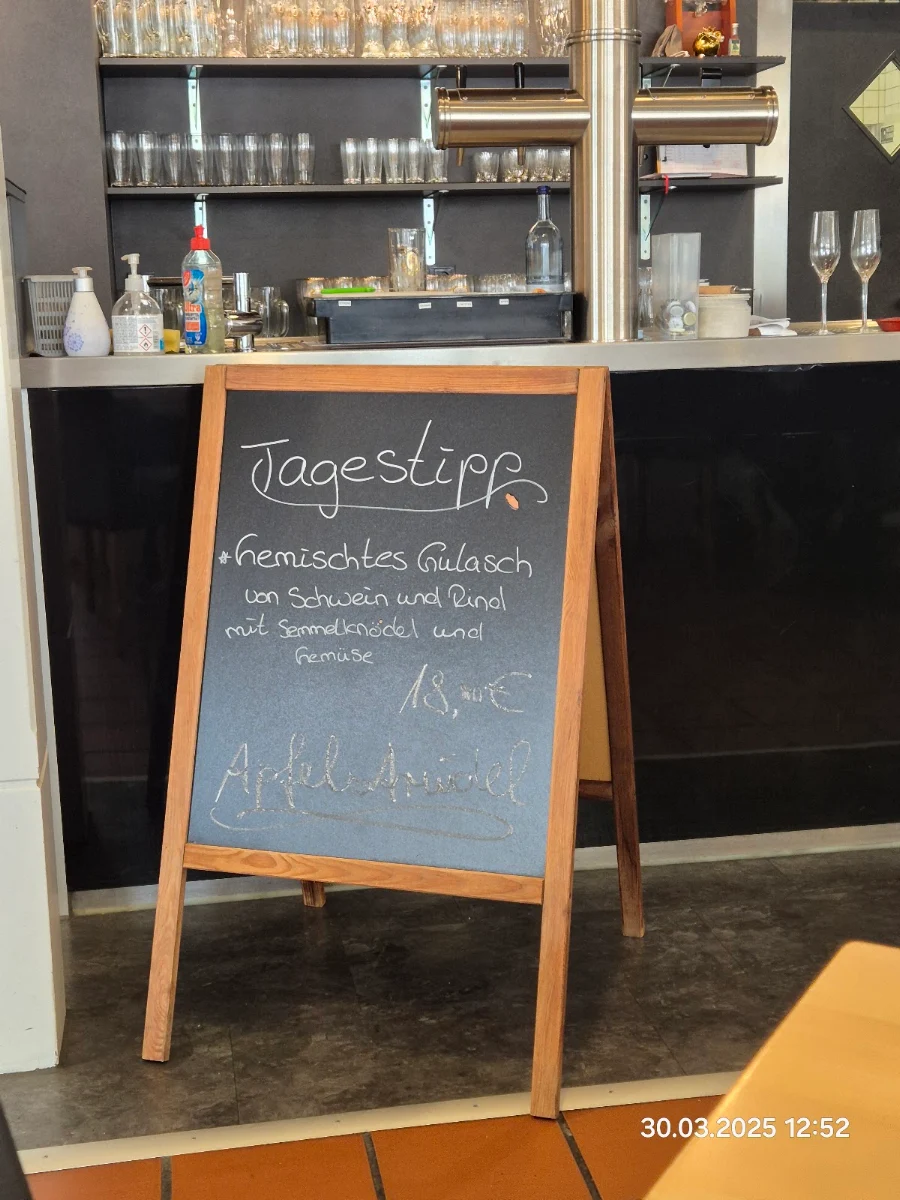 Tagestipp
*Gemischtes Gulasch
von Schwein und Rind
mit Semmelknödel und
Gemüse
18,00€
Apfelstrudel
30.03.2025 12:52